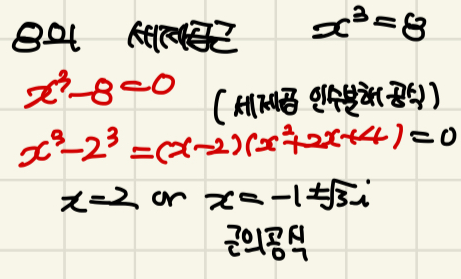 8의 세제곱근 x³=8
x³-8=0
(세제곱 인수분해 공식)
x³-2³=(x-2)(x²+2x+4)=0
x=2 or x=-1±√3i
근의공식